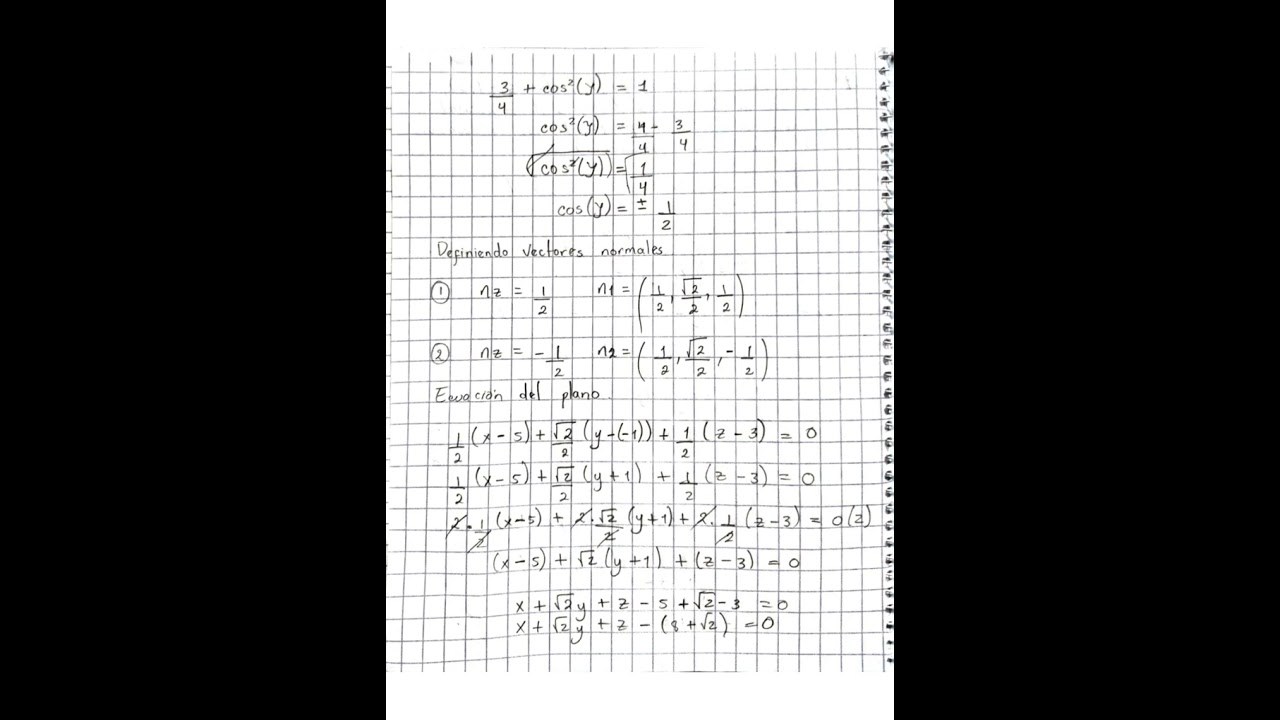 3/4 + cos²(y) = 1
cos²(y) = 4/4 - 3/4
√cos²(y) = √1/4
cos(y) = ± 1/2
Definiendo vectores normales
① nz = 1/2 n1 = (1/2, √2/2, 1/2)
② nz = - 1/2 n2 = (1/2, √2/2, -1/2)
Ecuación del plano
1/2 (x - 5) + √2/2 (y - (-1)) + 1/2 (z - 3) = 0
1/2 (x - 5) + √2/2 (y + 1) + 1/2 (z - 3) = 0
2 · 1/2 (x - 5) + 2 · √2/2 (y + 1) + 2 · 1/2 (z - 3) = 0(2)
(x - 5) + √2 (y + 1) + (z - 3) = 0
x + √2 y + z - 5 + √2 - 3 = 0
x + √2 y + z - (8 + √2) = 0